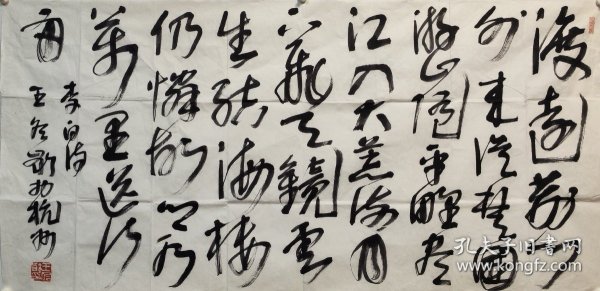 渡远荆门
外来从楚国
游山随平野尽
江入大荒流月
下飞天镜云
生结海楼
仍怜故乡水
万里送行
舟
李白诗
于杭州
孔夫子旧书网
www.kongfz.com